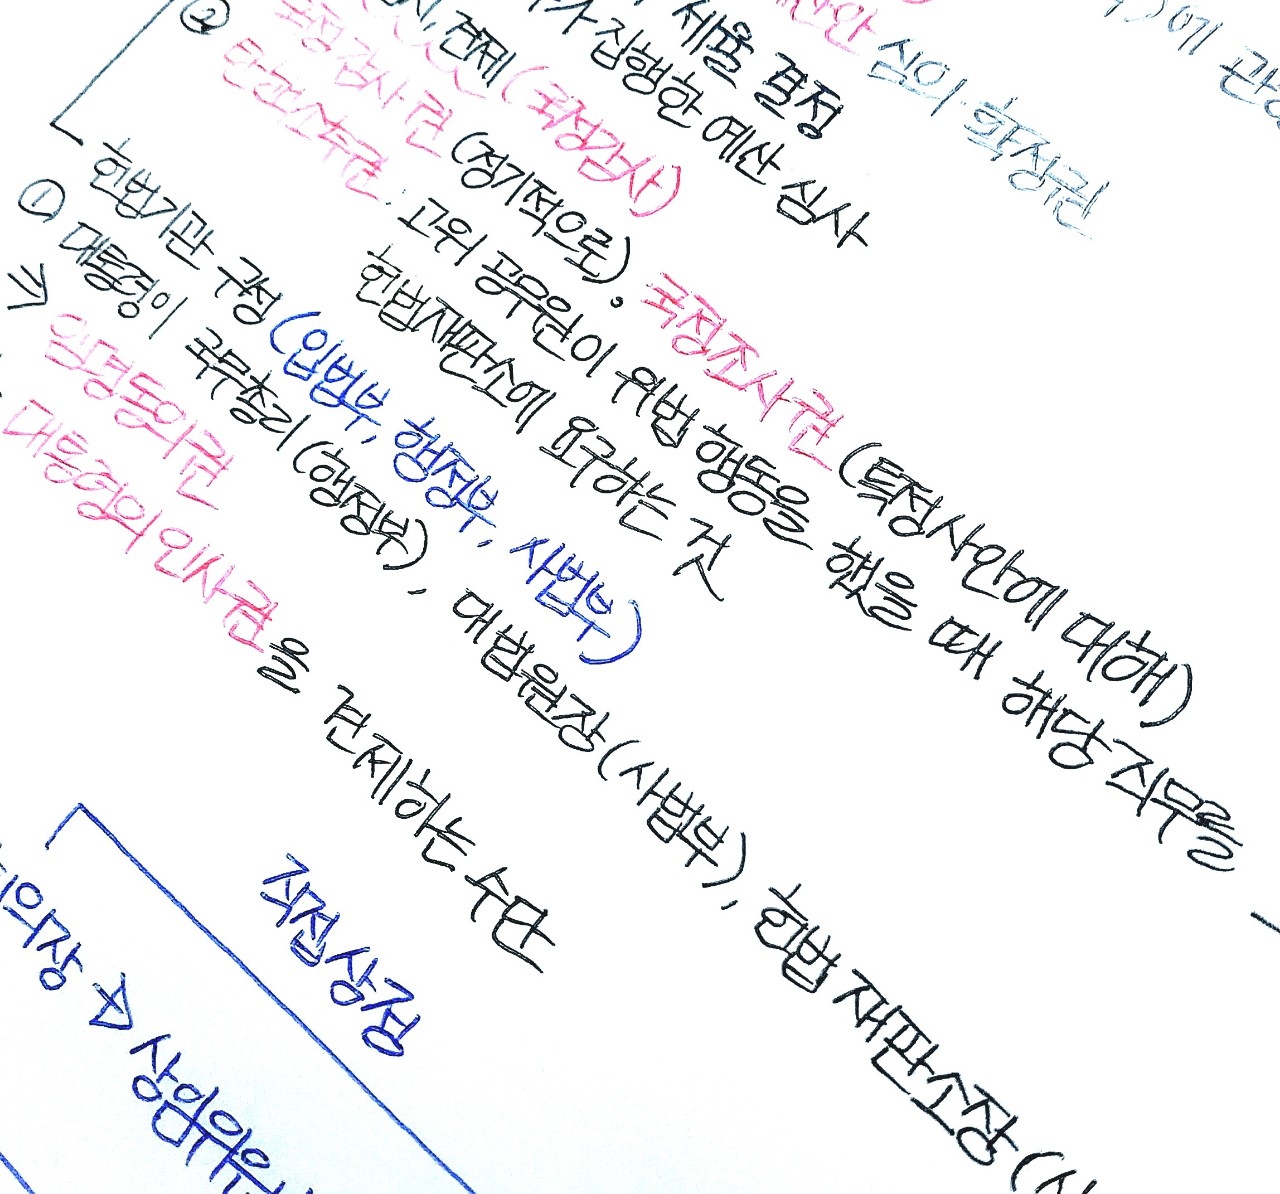 에 관
심의·확정권
세율 결정
가 집행한 예산 심사
견제 (국정감사)
② 국정감사권 (정기적으로), 국정조사권 (특정사안에 대해)
탄핵소추권: 고위 공무원이 위법 행동을 했을 때 해당 직무를
헌법재판소에 요구하는 것
헌법기관 구성 (입법부, 행정부, 사법부)
① 대통령이 국무총리 (행정부), 대법원장 (사법부), 헌법 재판소장 (사
⇒ 임명동의권
대통령의 인사권을 견제하는 수단
직접상정
의장 → 상임위원